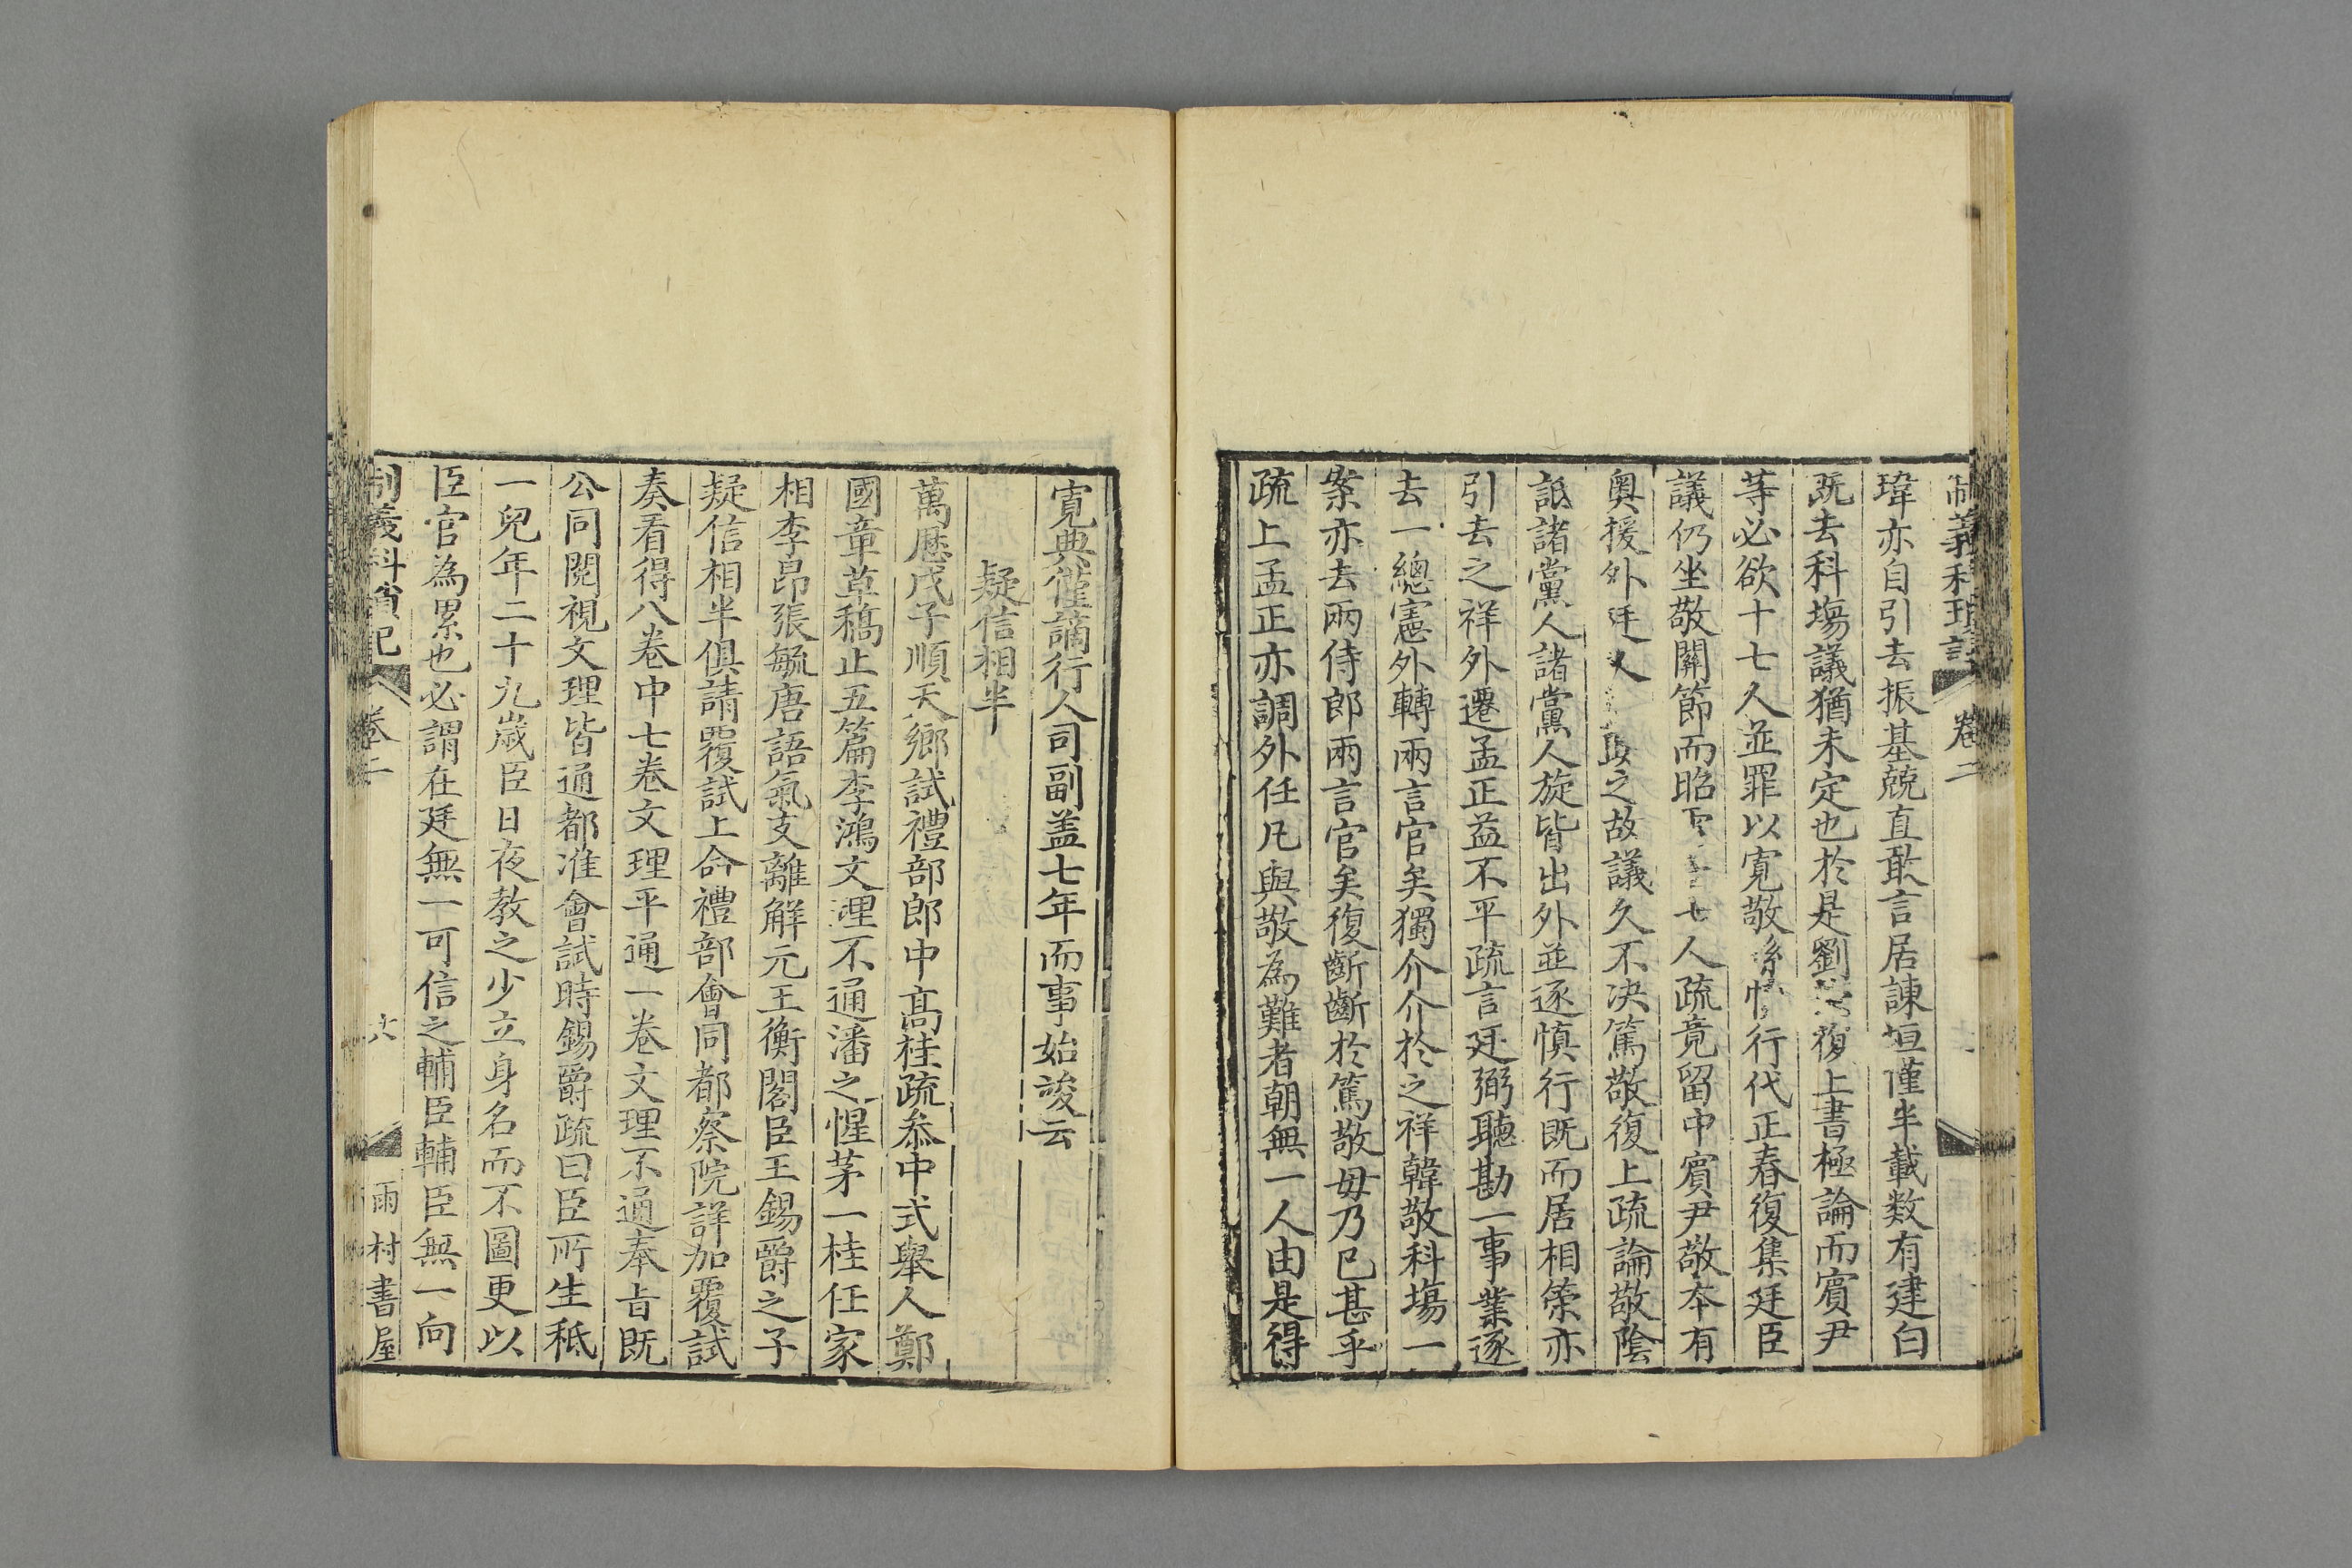 制義科瑣記 卷二
瑋亦自引去振基兢直敢言居諫垣僅半載数有建白
既去科塲議猶未定也於是劉復上書極論而賓尹
等必欲十七人並罪以寛敬行代正春復集廷臣
議仍坐敬關節而昭七人疏竟留中賓尹敬本有
奥援外廷人之故議久不决篤敬復上疏論敬陰
詆諸黨人諸黨人旋皆出外並逐慎行既而居相策亦
引去之祥外遷孟正益不平疏言廷弼聽勘一事業逐
去一總憲外轉兩言官矣獨介介於之祥韓敬科塲一
案亦去兩侍郎兩言官矣復齗齗於篤敬毋乃已甚乎
疏上孟正亦調外任凡與敬為難者朝無一人由是得
寛典僅謫行人司副盖七年而事始竣云
疑信相半
萬歷戊子順天鄉試禮部郎中髙桂疏叅中式舉人鄭
國章草稿止五篇李鴻文理不通潘之惺茅一桂任家
相李昂張毓唐語氣支離解元王衡閣臣王錫爵之子
疑信相半俱請覆試上命禮部會同都察院詳加覆試
奏看得八卷中七卷文理平通一卷文理不通奉旨既
公同閱視文理皆通都准會試時錫爵疏曰臣所生秪
一兒年二十九歲臣日夜教之少立身名而不圖更以
臣官為累也必謂在廷無一可信之輔臣輔臣無一向
制義科瑣記 卷二 六 雨村書屋